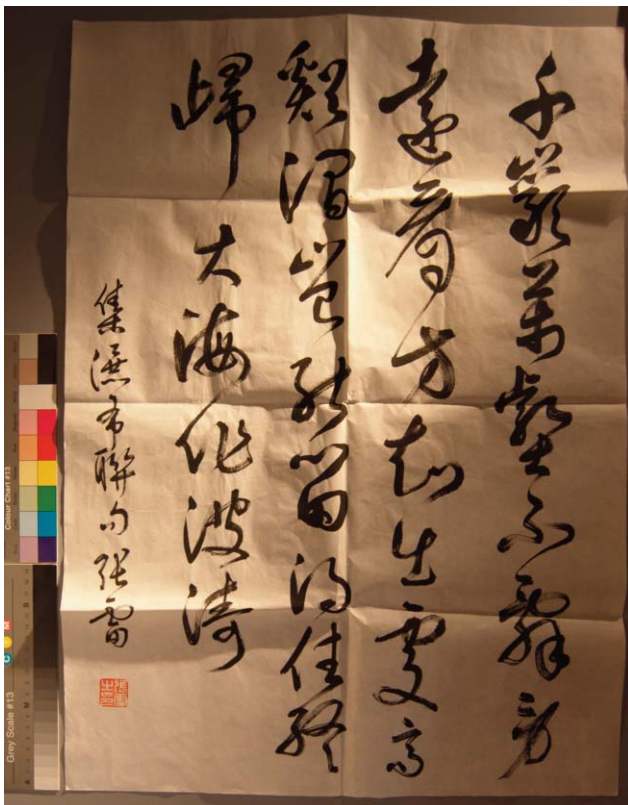 千巖萬壑不辭勞
遠看方知出處高
谿澗豈能留得住終
歸大海作波濤
集瀑布聯句張雷
Colour Chart #13
Grey Scale #13
C Y M